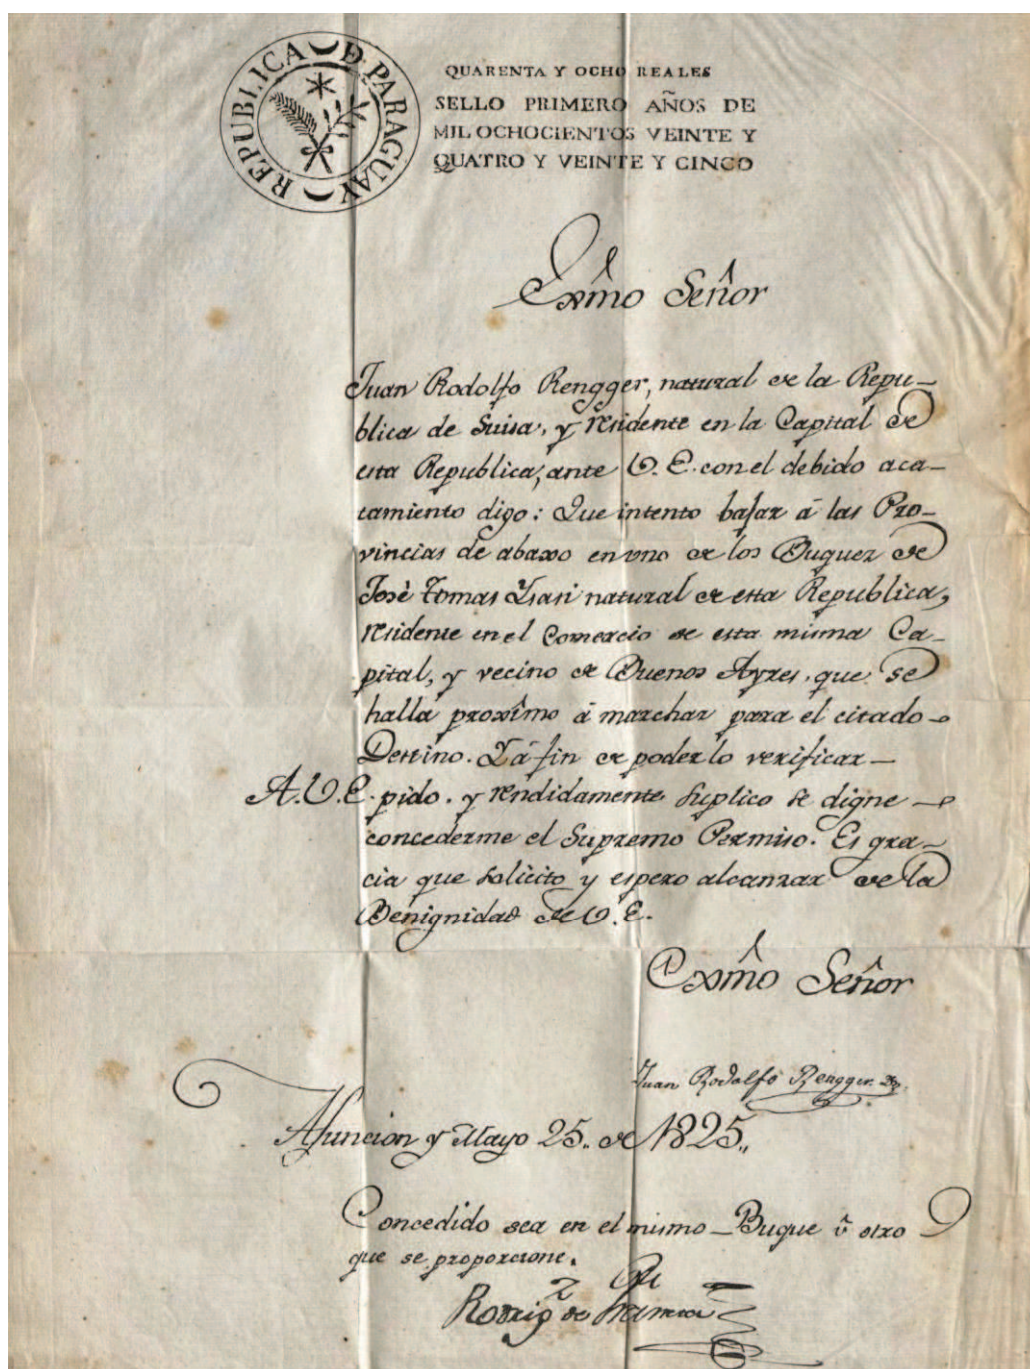 REPUBLICA D PARAGUAY
QUARENTA Y OCHO REALES
SELLO PRIMERO AÑOS DE
MIL OCHOCIENTOS VEINTE Y
QUATRO Y VEINTE Y CINCO
Exmo Señor
Juan Rodolfo Rengger, natural de la Repu-
blica de Suisa, y residente en la Capital de
esta Republica, ante V. E. con el debido aca-
tamiento digo: Que intento bajar á las Pro-
vincias de abaxo en uno de los Buquez de
José Tomas Ysasi natural de esta Republica,
residente en el Comercio de esta misma Ca-
pital, y vecino de Buenos Ayres, que se
halla proximo á marchar para el citado
Destino. Y á fin de poderlo verificar
A.V.E. pido. y rendidamente suplico se digne
concederme el Supremo Permiso. Es gra-
cia que solicito y espero alcanzar de la
Benignidad de V. E.
Exmo Señor
Juan Rodolfo Rengger.
Asuncion y Mayo 25. de 1825.
Concedido sea en el mismo Buque ú otro
que se proporcione.
Rodrig de Francia